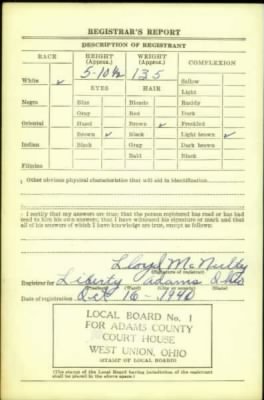 REGISTRAR'S REPORT
DESCRIPTION OF REGISTRANT
RACE HEIGHT (Approx.) WEIGHT (Approx.) COMPLEXION
5-10½ 135
White ✓ Sallow
EYES HAIR Light
Negro Blue Blonde Ruddy
Gray Red Dark
Oriental Hazel Brown Freckled
Brown ✓ Black ✓ Light brown ✓
Indian Black Gray Dark brown
Bald Black
Filipino
Other obvious physical characteristics that will aid in identification
I certify that my answers are true; that the person registered has read or has had
read to him his own answers; that I have witnessed his signature or mark and that
all of his answers of which I have knowledge are true, except as follows:
Lloyd
(Signature of registrar)
Registrar for Liberty Adams Ohio
(Precinct) (Ward) (City or county) (State)
Date of registration Oct 16-1940
LOCAL BOARD No. 1
FOR ADAMS COUNTY
COURT HOUSE
WEST UNION, OHIO
(STAMP OF LOCAL BOARD)
(The stamp of the Local Board having jurisdiction of the registrant
shall be placed in the above space.)